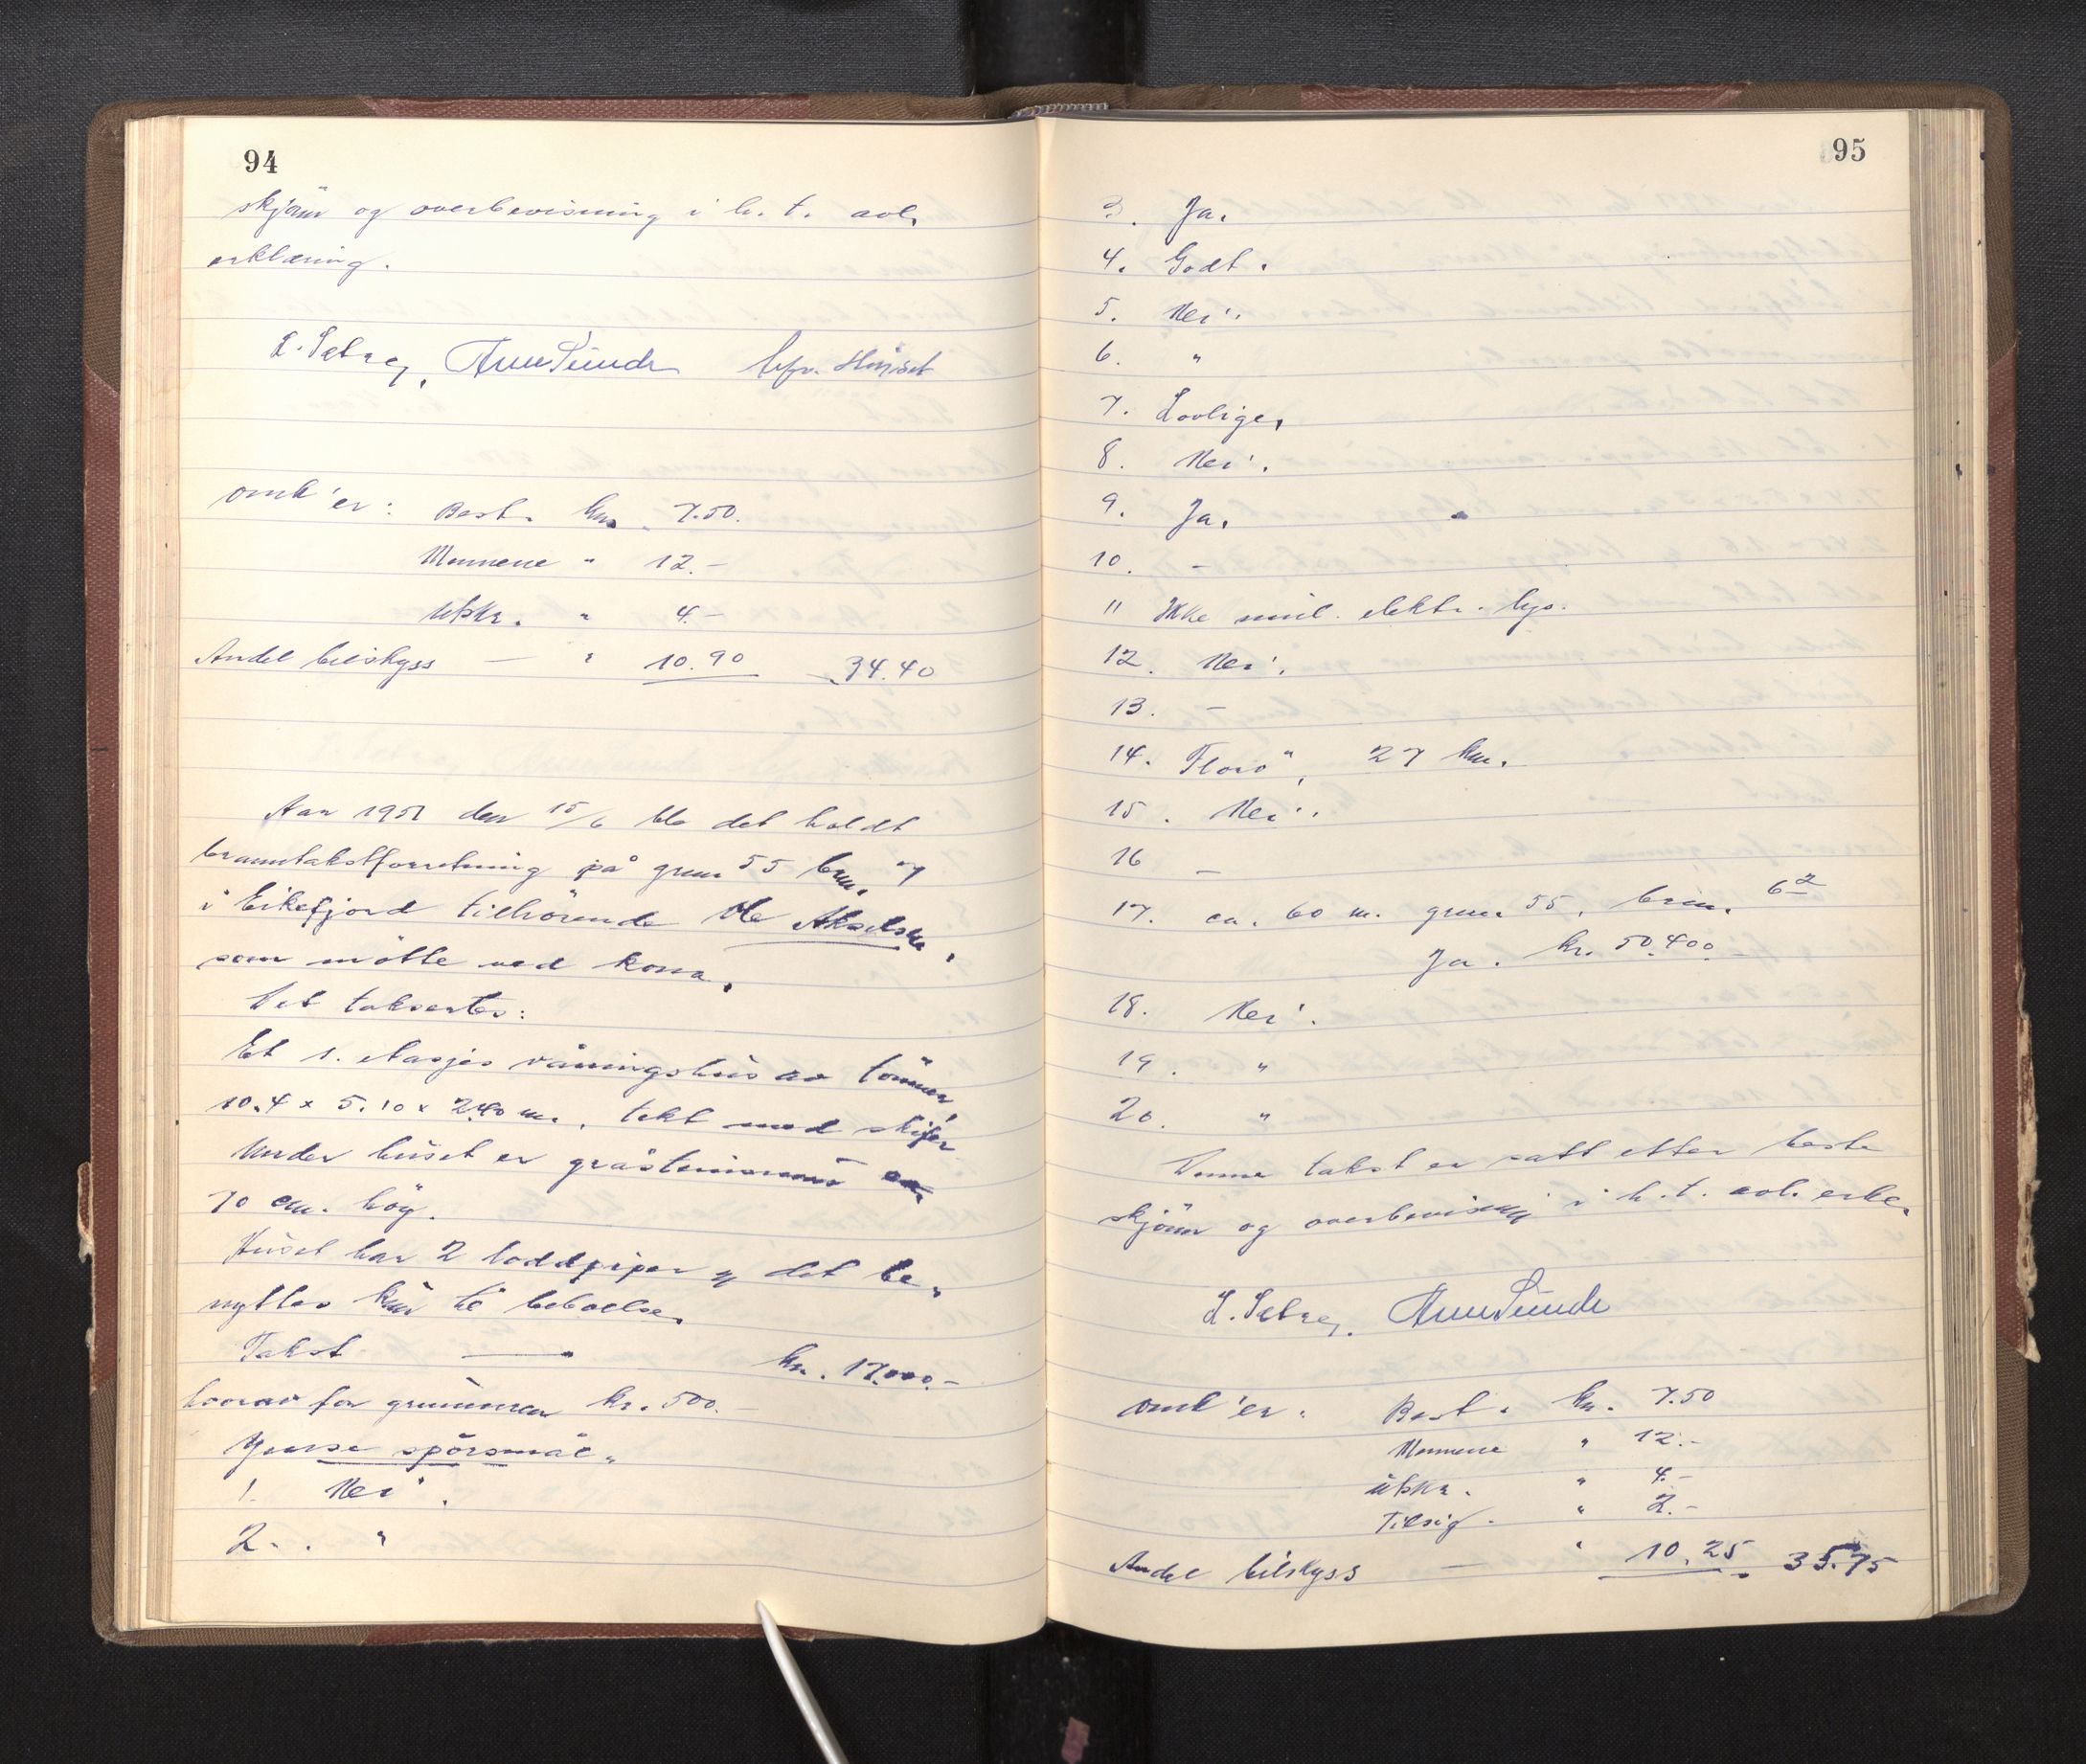 94
skjönn og overbevisning i h. t. avl.
erklæring.
L. Sebræg, Arne Sunde
omk'er: Best. kr. 7.50.
Mennene " 12.-
Utskr. " 4.-
Andel bilskyss — " 10.90 34.40
Aar 1951 den 15/6 ble det holdt
branntakstforretning på grnr 55 brnr. 7
i Eikefjord tilhörende Ole Akselsen,
som mötte ved kona.
Det takserte:
Et 1. etasjes våningshus av tömmer,
10.4 x 5.10 x 2.40 m., tekt med skifer
Under huset er gråsteinsmur ca.
70 cm. höy.
Huset har 2 loddpiper og det be-
nyttes kun til beboelse.
Takst — kr. 17.000.-
hvorav for grunnmur kr. 500.-
Yeuse spörsmål.
1. Nei.
2. . "
95
3. Ja.
4. Godt.
5. Nei.
6. "
7. Lovlige.
8. Nei.
9. Ja.
10. -
11 Ikke innl. elektr. lys.
12. Nei.
13. -
14. Florö, 27 km.
15. Nei.
16 -
17. ca. 60 m. grnr. 55, brnr. 62
Ja. kr. 50.400.-
18. Nei.
19. "
20. "
Denne takst er satt etter beste
skjönn og overbevisning i h. t. avl. erkl.
L. Sebræg. Arne Sunde
omk'er: Best. kr. 7.50
Mennene " 12.-
utskr. " 4.-
Tilsig. " 2.-
Andel bilskyss — " 10.25 35.75